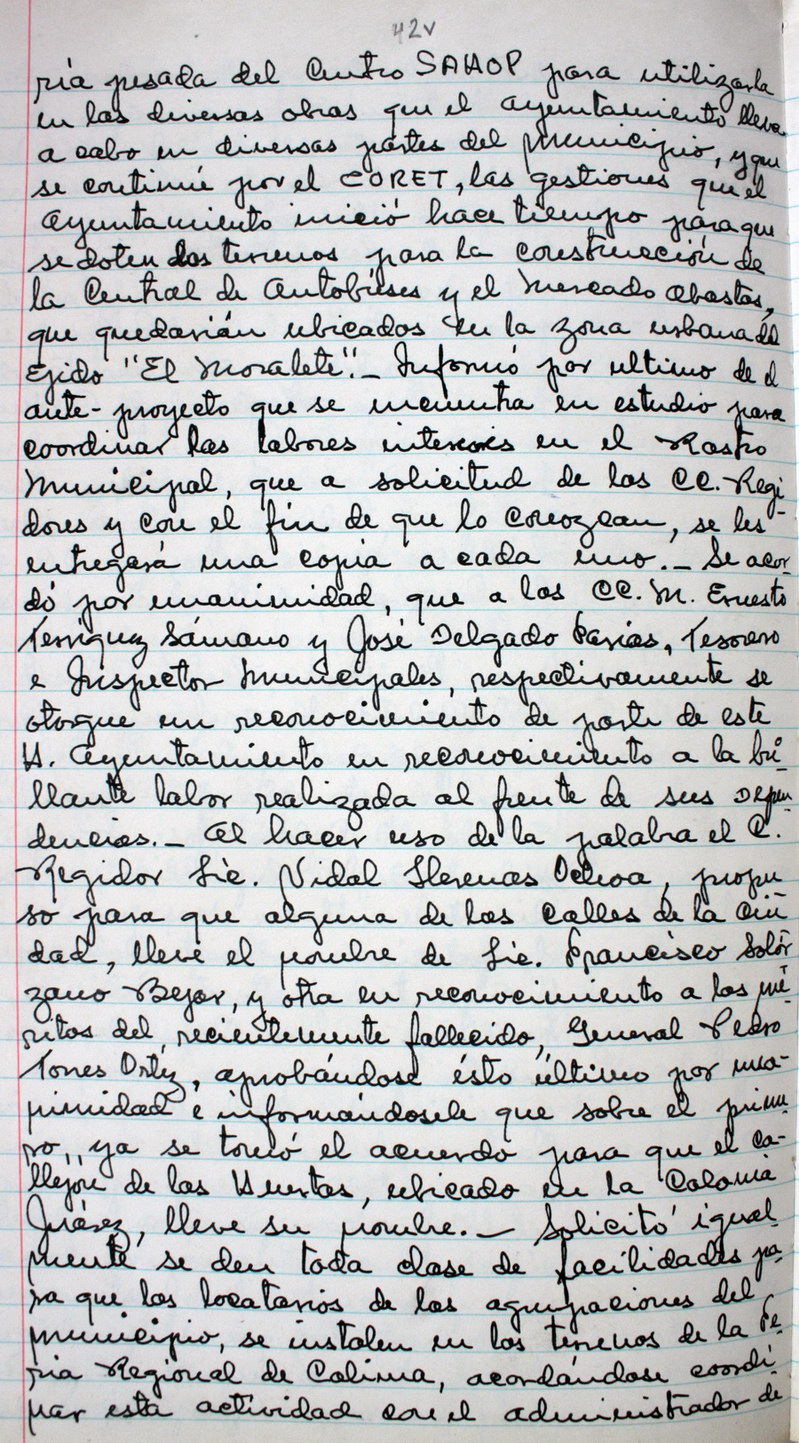 42v
ría pesada del Centro SAHOP para utilizarla
en las diversas obras que el Ayuntamiento lleva
a cabo en diversas partes del Municipio, y que
se continúe por el CORET, las gestiones que el
Ayuntamiento inició hace tiempo para que
se doten los terrenos para la construcción de
la Central de Autobuses y el Mercado Abastos,
que quedarían ubicados en la zona urbana del
Ejido "El Moralete".- Informó por ultimo de el
ante-proyecto que se encuentra en estudio para
coordinar las labores interiores en el Rastro
Municipal, que a solicitud de los CC. Regi
dores y con el fin de que lo conozcan, se les
entregará una copia a cada uno.- Se acor
dó por unanimidad, que a los CC. M. Ernesto
Terríquez Sámano y José Delgado Farías, Tesorero
e Inspector Municipales, respectivamente se
otorgue un reconocimiento de parte de este
H. Ayuntamiento en reconocimiento a la bri-
llante labor realizada al frente de sus Depen
dencias.- Al hacer uso de la palabra el C.
Regidor Lic. Vidal Llerenas Ochoa, propu
so para que alguna de las calles de la Ciu
dad, lleve el nombre de Lic. Francisco Solór
zano Bejar, y otra en reconocimiento a los mé
ritos del, recientemente fallecido, General Pedro
Torres Ortíz, aprobándose ésto último por una-
nimidad e informándosele que sobre el prime
ro, ya se tomó el acuerdo para que el Ca-
llejón de las Huertas, ubicado en la Colonia
Juárez, lleve su nombre.- Solicitó igual
mente se den toda clase de facilidades pa
ra que los locatarios de las agrupaciones del
municipio, se instalen en los terrenos de la Fe
ria Regional de Colima, acordándose coordi
nar esta actividad con el administrador de